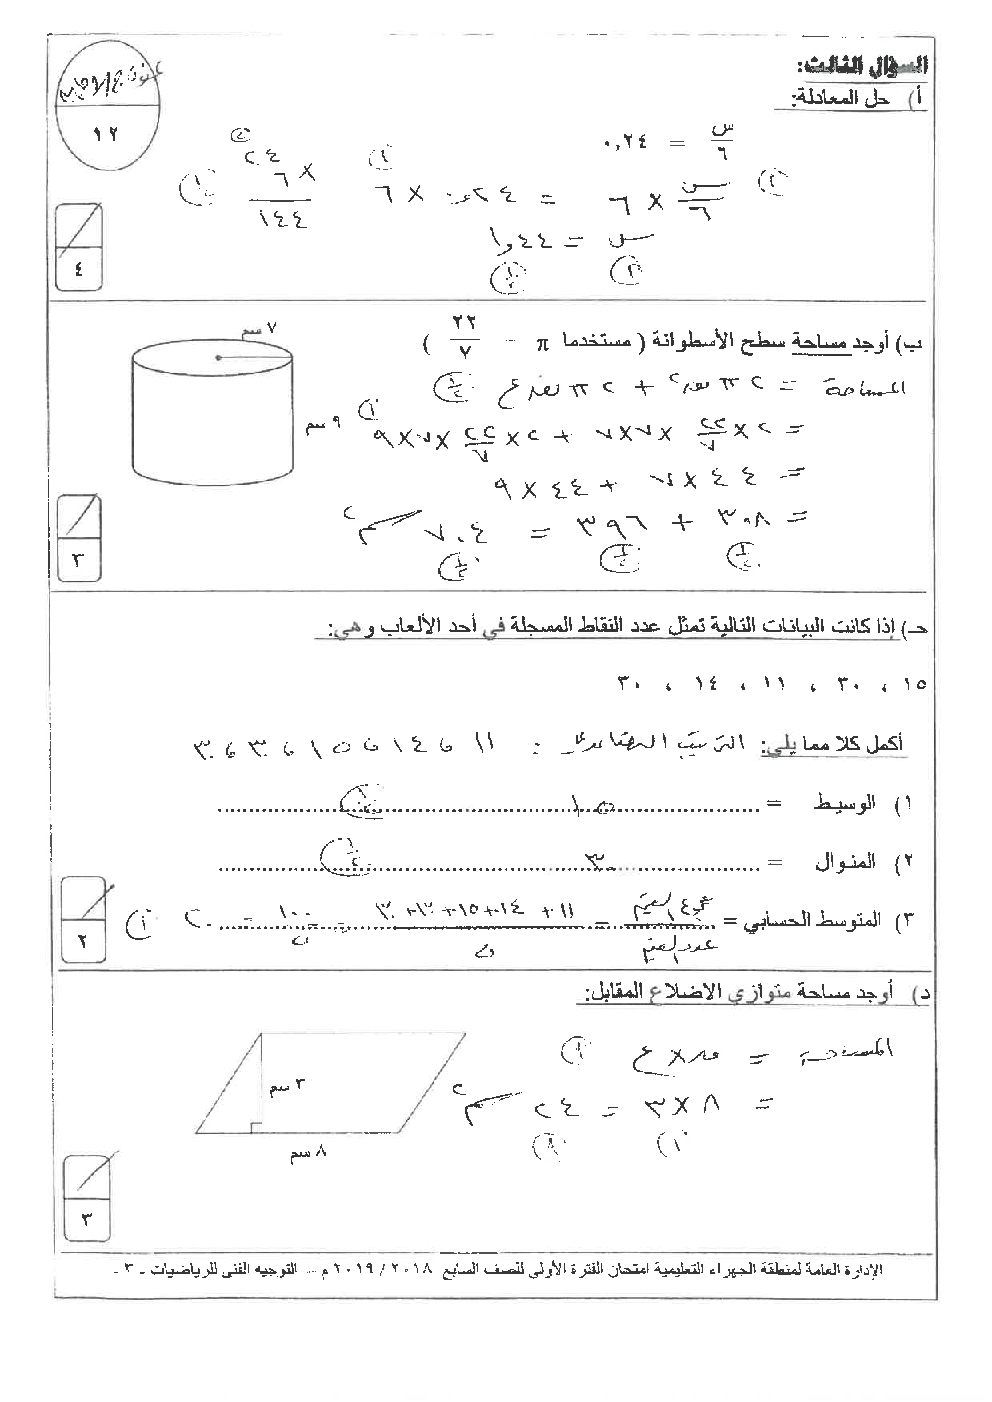 السؤال الثالث:
نموذج الإجابة
١٢
أ) حل المعادلة:
س/٦ = ٠,٢٤
س/٦ × ٦ = ٠,٢٤ × ٦
٢٤
× ٦
١٤٤
س = ١,٤٤
٤
ب) أوجد مساحة سطح الأسطوانة ( مستخدما π = ٢٢/٧ )
٧ سم
٩ سم
المساحة = ٢ π نق٢ + ٢ π نق ع
= ٢ × ٢٢/٧ × ٧ × ٧ + ٢ × ٢٢/٧ × ٧ × ٩
= ٤٤ × ٧ + ٤٤ × ٩
= ٣٠٨ + ٣٩٦ = ٧٠٤ سم٢
٣
حـ) إذا كانت البيانات التالية تمثل عدد النقاط المسجلة في أحد الألعاب وهي:
١٥ ، ٣٠ ، ١١ ، ١٤ ، ٣٠
أكمل كلا مما يلي: الترتيب التصاعدي : ١١ ، ١٤ ، ١٥ ، ٣٠ ، ٣٠
١) الوسيط = ١٥
٢) المنوال = ٣٠
٣) المتوسط الحسابي = مجموع القيم/عدد القيم = ١١ + ١٤ + ١٥ + ٣٠ + ٣٠/٥ = ١٠٠/٥ = ٢٠
٢
د) أوجد مساحة متوازي الاضلاع المقابل:
٣ سم
٨ سم
المساحة = ق × ع
= ٨ × ٣ = ٢٤ سم٢
٣
الإدارة العامة لمنطقة الجهراء التعليمية امتحان الفترة الأولى للصف السابع ٢٠١٨ / ٢٠١٩ م – التوجيه الفنى للرياضيات - ٣ -